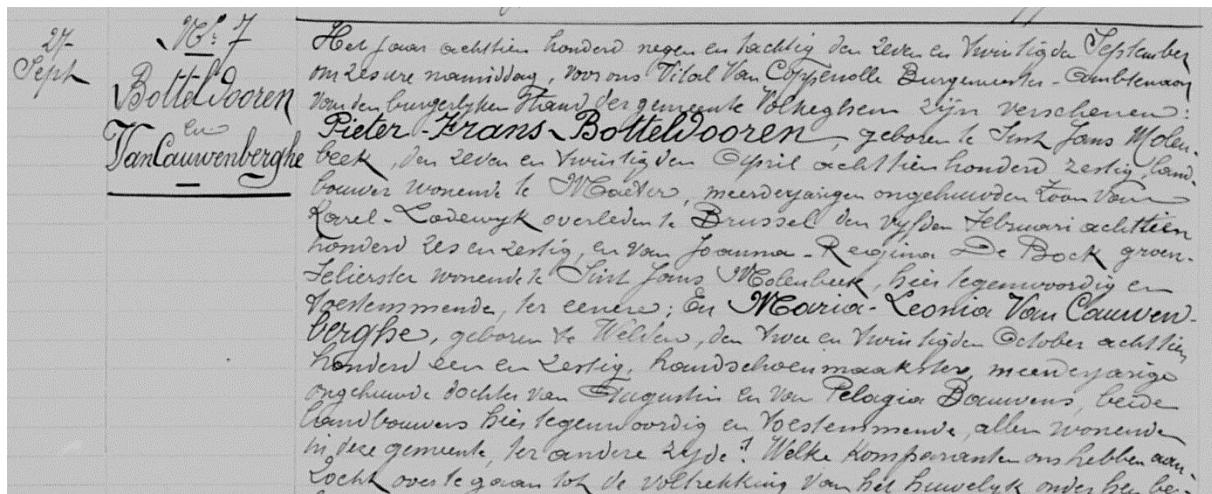 27
Sept
N° 7
Botteldooren
en
Van Cauwenberghe
Het jaar achttien honderd negen en tachtig den zeven en twintigden September
om zes ure namiddag, voor ons Vital Van Coppenolle Burgemeester-Ambtenaar
van den burgerlyken stand der gemeente Volkeghem zyn verschenen:
Pieter-Frans Botteldooren, geboren te Sint Jans Molen-
beek, den zeven en twintigden April achttien honderd zestig, land-
bouwer wonende te Maeter, meerderjarigen ongehuwden zoon van
Karel-Lodewyk overleden te Brussel den vyfden Februari achttien
honderd zes en zestig, en van Joanna-Regina De Bock groen-
selierster wonende te Sint Jans Molenbeek, hier tegenwoordig en
toestemmende, ter eenere; En Maria-Leonia Van Cauwen-
berghe, geboren te Welden, den twee en twintigden October achttien
honderd een en zestig, handschoenmaakster, meerderjarige
ongehuwde dochter van Augustin en van Pelagia Bauwens, beide
landbouwers hier tegenwoordig en toestemmende, allen wonende
in deze gemeente, ter andere zyde. Welke komparanten ons hebben aan-
zocht over te gaan tot de voltrekking van het huwelyk onder hen be-